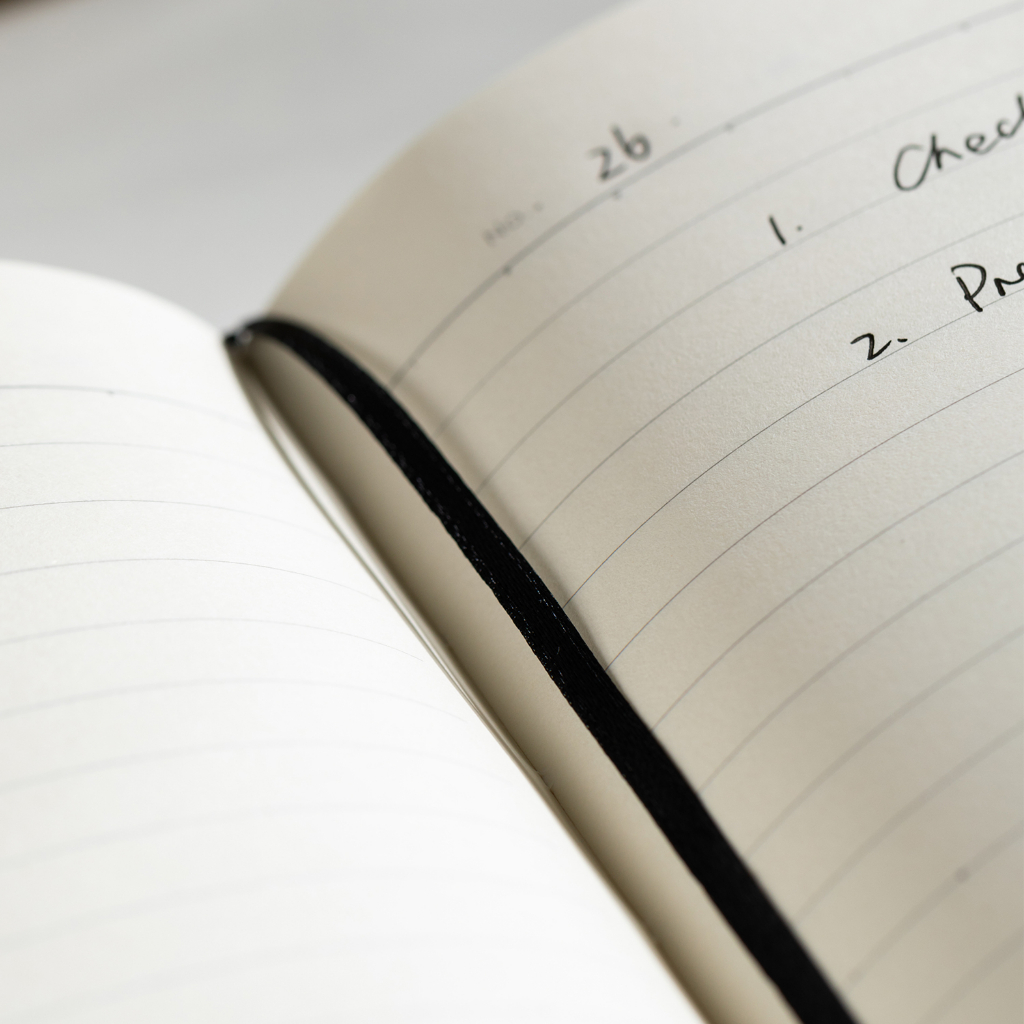 26
1. Chec
2. Pre